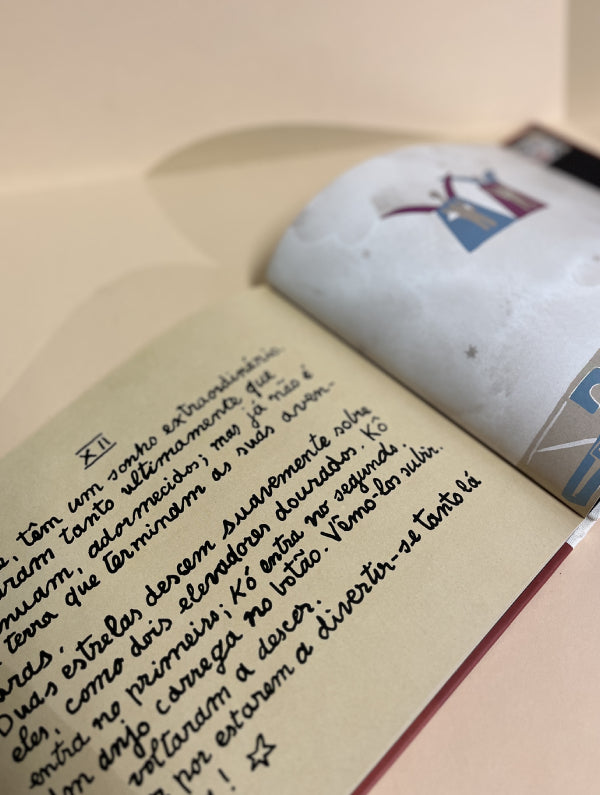 XII
têm um sonho extraordinário.
tanto ultimamente que
adormecidos; mas já não é
terra que terminam as suas aven-
Duas estrelas descem suavemente sobre
eles, como dois elevadores dourados. Kó
entra no primeiro; Kó entra no segundo.
anjo carrega no botão. Vêmo-los subir.
voltaram a descer.
por estarem a divertir-se tanto lá
!